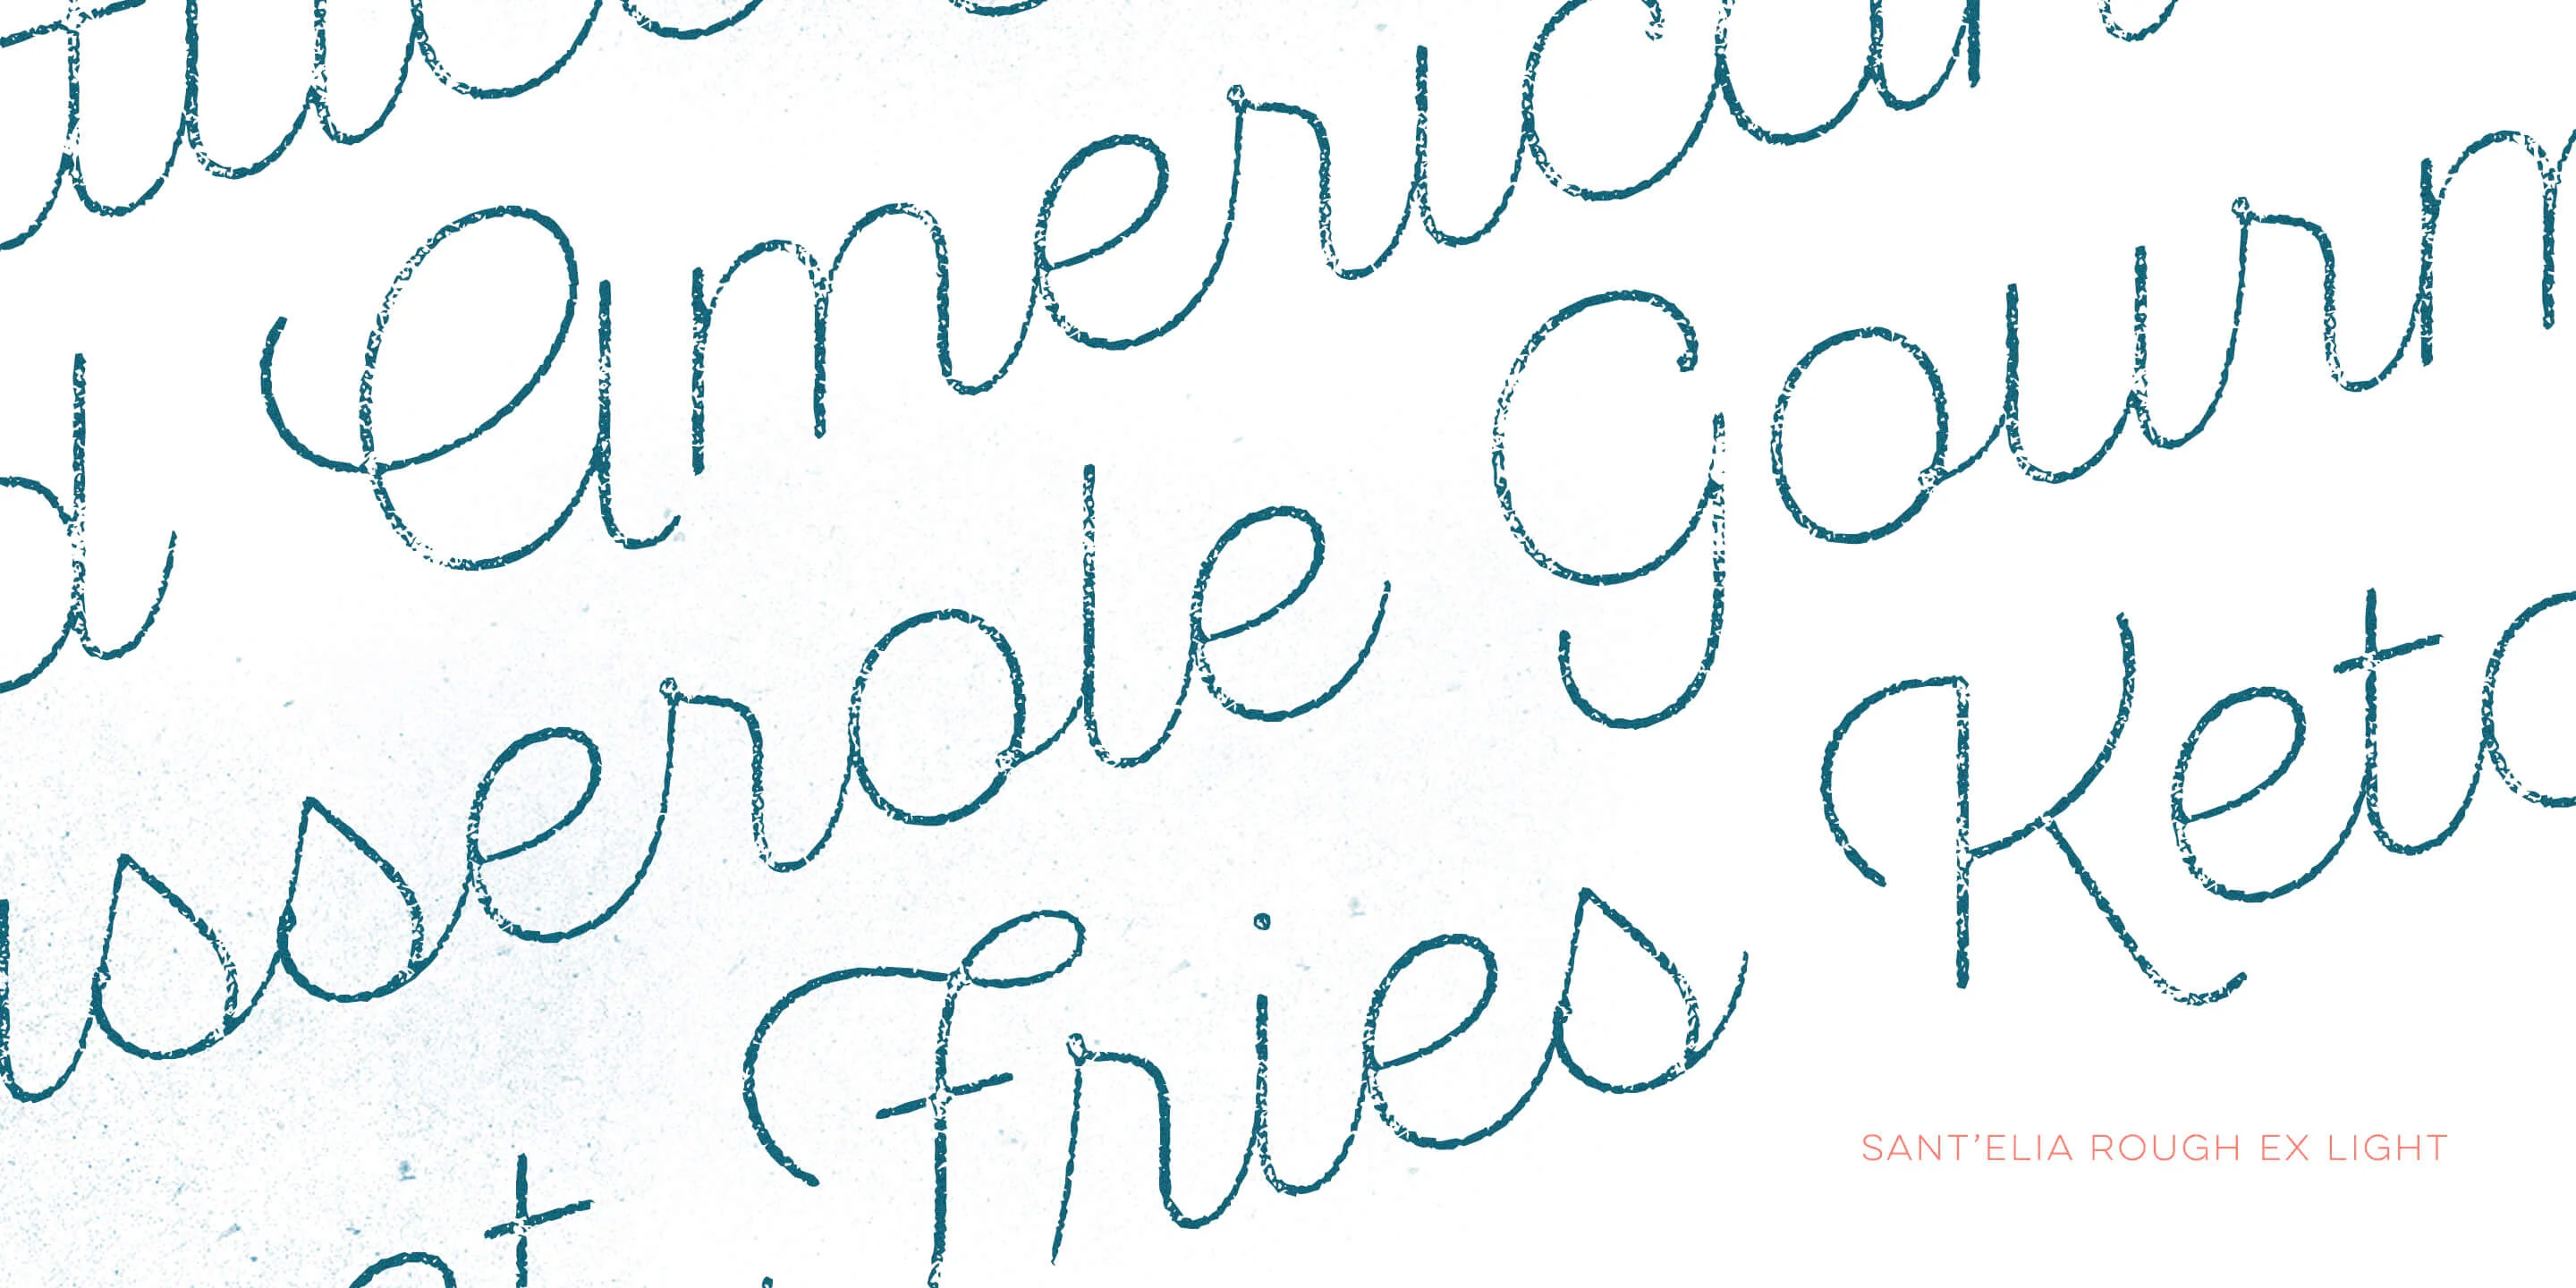 d American
sserole Gourm
Fries Keto
SANT'ELIA ROUGH EX LIGHT